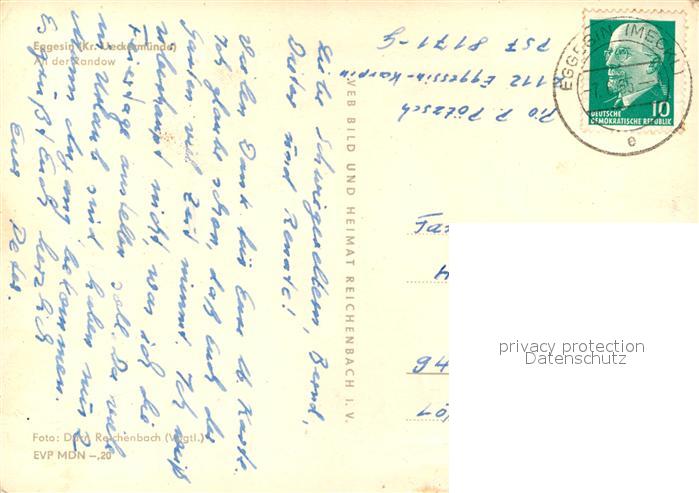 Eggesin (Kr. Ueckermünde)
An der Randow
Liebe Schwiegereltern, Bernd,
Dieter und Renate!
Vielen Dank für Eure lb. Karte.
Ich glaube schon, daß Euch der
Garten viel Zeit nimmt. Ich weiß
überhaupt nicht, was ich die
Feiertage anstellen soll. Da viele
in Urlaub sind, haben wir 2
Mann Ausgang bekommen.
Es grüßt Euch herzlich
Euer Peter.
Foto: Darr, Reichenbach (Vogtl.)
EVP MDN –,20
VEB BILD UND HEIMAT REICHENBACH I. V.
P. Pötzsch
112 Eggesin-Karpin
PSF 8171-G
EGGESIN (MECKL)
e
10
DEUTSCHE
DEMOKRATISCHE REPUBLIK
Fa
4
94
Lö
privacy protection
Datenschutz